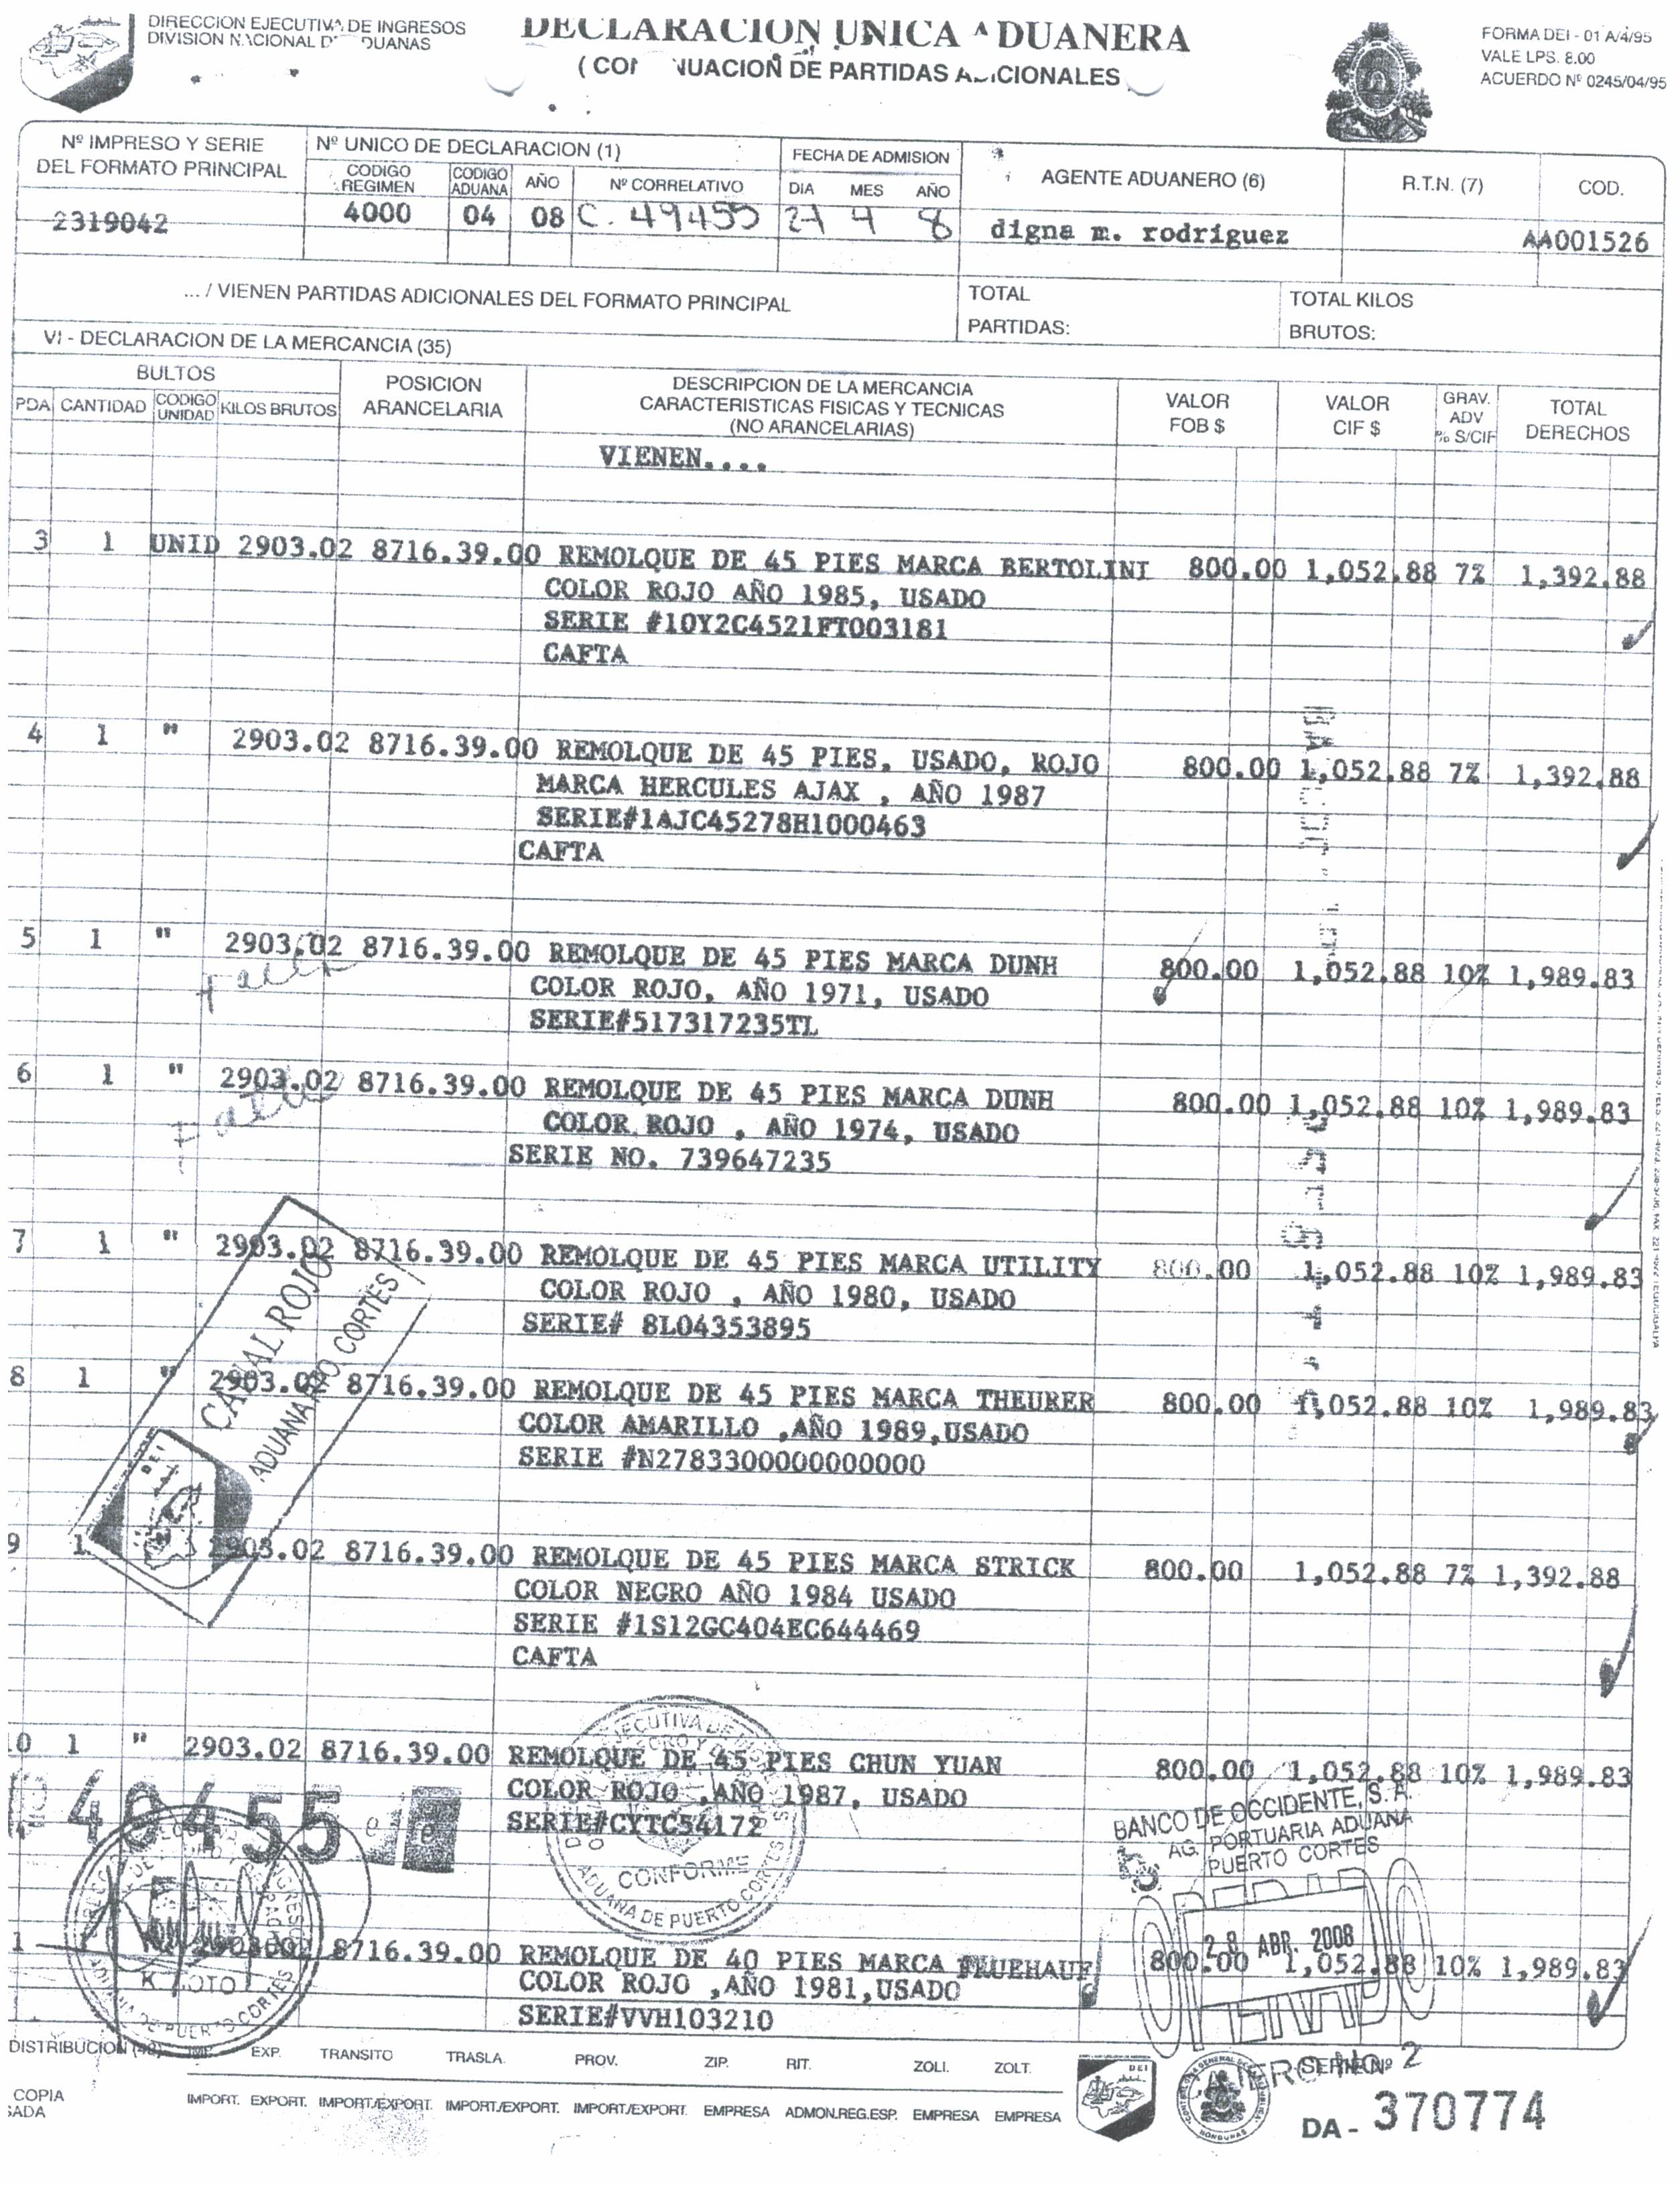 DIRECCION EJECUTIVA DE INGRESOS
DIVISION NACIONAL D DUANAS
DECLARACION UNICA A DUANERA
( CON NUACION DE PARTIDAS A ICIONALES
FORMA DEI - 01 A/4/95
VALE LPS. 8.00
ACUERDO Nº 0245/04/95
Nº IMPRESO Y SERIE
DEL FORMATO PRINCIPAL
2319042
Nº UNICO DE DECLARACION (1)
CODIGO REGIMEN
CODIGO ADUANA
AÑO
Nº CORRELATIVO
4000 04 08 C. 49455
FECHA DE ADMISION
DIA MES AÑO
4 8
AGENTE ADUANERO (6)
digna m. rodriguez
R.T.N. (7)
COD.
AA001526
... / VIENEN PARTIDAS ADICIONALES DEL FORMATO PRINCIPAL
TOTAL
PARTIDAS:
TOTAL KILOS
BRUTOS:
VI - DECLARACION DE LA MERCANCIA (35)
BULTOS
PDA CANTIDAD CODIGO UNIDAD KILOS BRUTOS
POSICION
ARANCELARIA
DESCRIPCION DE LA MERCANCIA
CARACTERISTICAS FISICAS Y TECNICAS
(NO ARANCELARIAS)
VALOR
FOB $
VALOR
CIF $
GRAV.
ADV
% S/CIF
TOTAL
DERECHOS
VIENEN....
3 1 UNID 2903.02 8716.39.00 REMOLQUE DE 45 PIES MARCA BERTOLINI 800.00 1,052.88 7% 1,392.88
COLOR ROJO AÑO 1985, USADO
SERIE #10Y2C4521FT003181
CAFTA
4 1 " 2903.02 8716.39.00 REMOLQUE DE 45 PIES, USADO, ROJO 800.00 1,052.88 7% 1,392.88
MARCA HERCULES AJAX , AÑO 1987
SERIE#1AJC45278H1000463
CAFTA
5 1 " 2903.02 8716.39.00 REMOLQUE DE 45 PIES MARCA DUNH 800.00 1,052.88 10% 1,989.83
COLOR ROJO, AÑO 1971, USADO
SERIE#517317235TL
6 1 " 2903.02 8716.39.00 REMOLQUE DE 45 PIES MARCA DUNH 800.00 1,052.88 10% 1,989.83
COLOR ROJO , AÑO 1974, USADO
SERIE NO. 739647235
7 1 " 2903.02 8716.39.00 REMOLQUE DE 45 PIES MARCA UTILITY 800.00 1,052.88 10% 1,989.83
COLOR ROJO , AÑO 1980, USADO
SERIE# 8L04353895
8 1 " 2903.02 8716.39.00 REMOLQUE DE 45 PIES MARCA THEURER 800.00 1,052.88 10% 1,989.83
COLOR AMARILLO ,AÑO 1989,USADO
SERIE #N2783300000000000
CANAL ROJO
ADUANA PTO CORTES
DEI
9 1 2903.02 8716.39.00 REMOLQUE DE 45 PIES MARCA STRICK 800.00 1,052.88 7% 1,392.88
COLOR NEGRO AÑO 1984 USADO
SERIE #1S12GC404EC644469
CAFTA
10 1 " 2903.02 8716.39.00 REMOLQUE DE 45 PIES CHUN YUAN 800.00 1,052.88 10% 1,989.83
COLOR ROJO ,AÑO 1987, USADO
SERIE#CYTC54172
CONFORME
ADUANA DE PUERTO CORTES
BANCO DE OCCIDENTE, S. A.
AG. PORTUARIA ADUANA
PUERTO CORTES
28 ABR. 2008
8716.39.00 REMOLQUE DE 40 PIES MARCA FRUEHAUF 800.00 1,052.88 10% 1,989.83
COLOR ROJO ,AÑO 1981,USADO
SERIE#VVH103210
DISTRIBUCION (48) IMP. EXP. TRANSITO TRASLA. PROV. ZIP. RIT. ZOLI. ZOLT.
COPIA
IMPORT. EXPORT. IMPORT./EXPORT. IMPORT./EXPORT. IMPORT./EXPORT. EMPRESA ADMON.REG.ESP. EMPRESA EMPRESA
DEI
SERIE Nº
DA - 370774